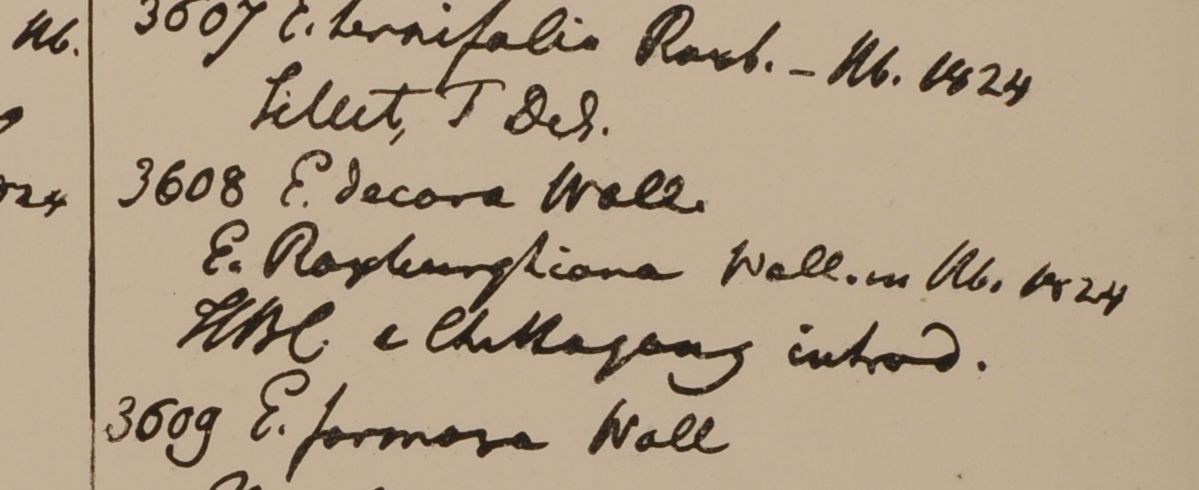 Hb.
824
3607 E. ternifolia Roxb. - Hb. 1824
Sillet, T Des.
3608 E. decora Wall.
E. Roxburghiana Wall. in Hb. 1824
HBC. e Chittagong introd.
3609 E. formosa Wall